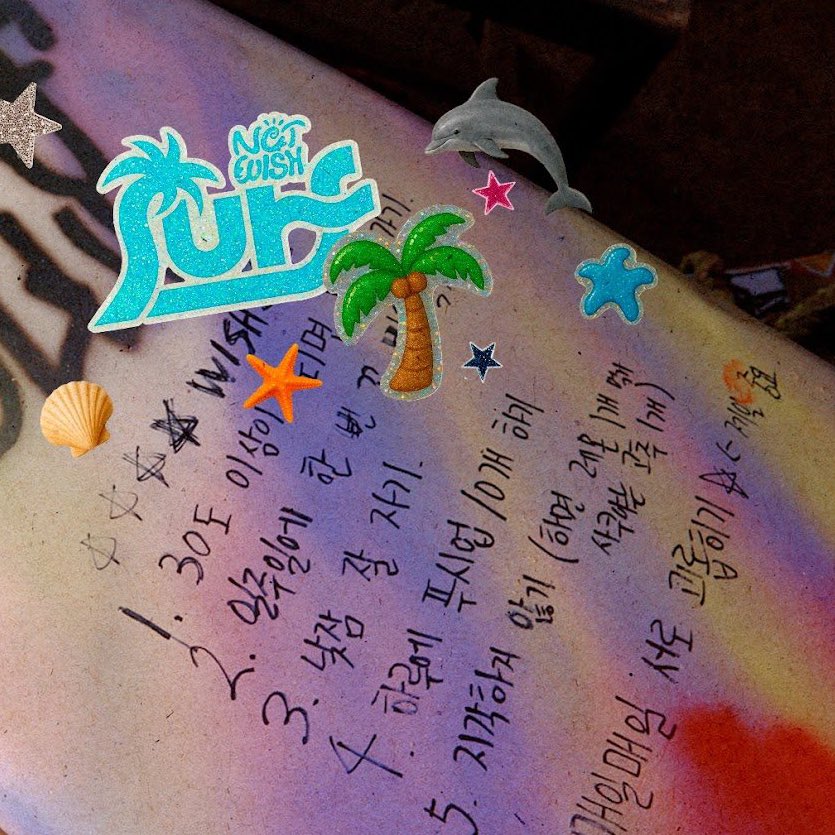 NCT
WISH
Surf
WISH
1. 30도 이상이 되면
가기.
2. 일주일에 한 번
3. 낮잠 잘 자기.
4. 하루에 푸시업 10개 하기
5. 지각하지 않기 (하면 레몬 1개 먹기
사쿠야는 고추 1개)
매일매일 서로 괴롭히기 ☆ <- 제일 중요